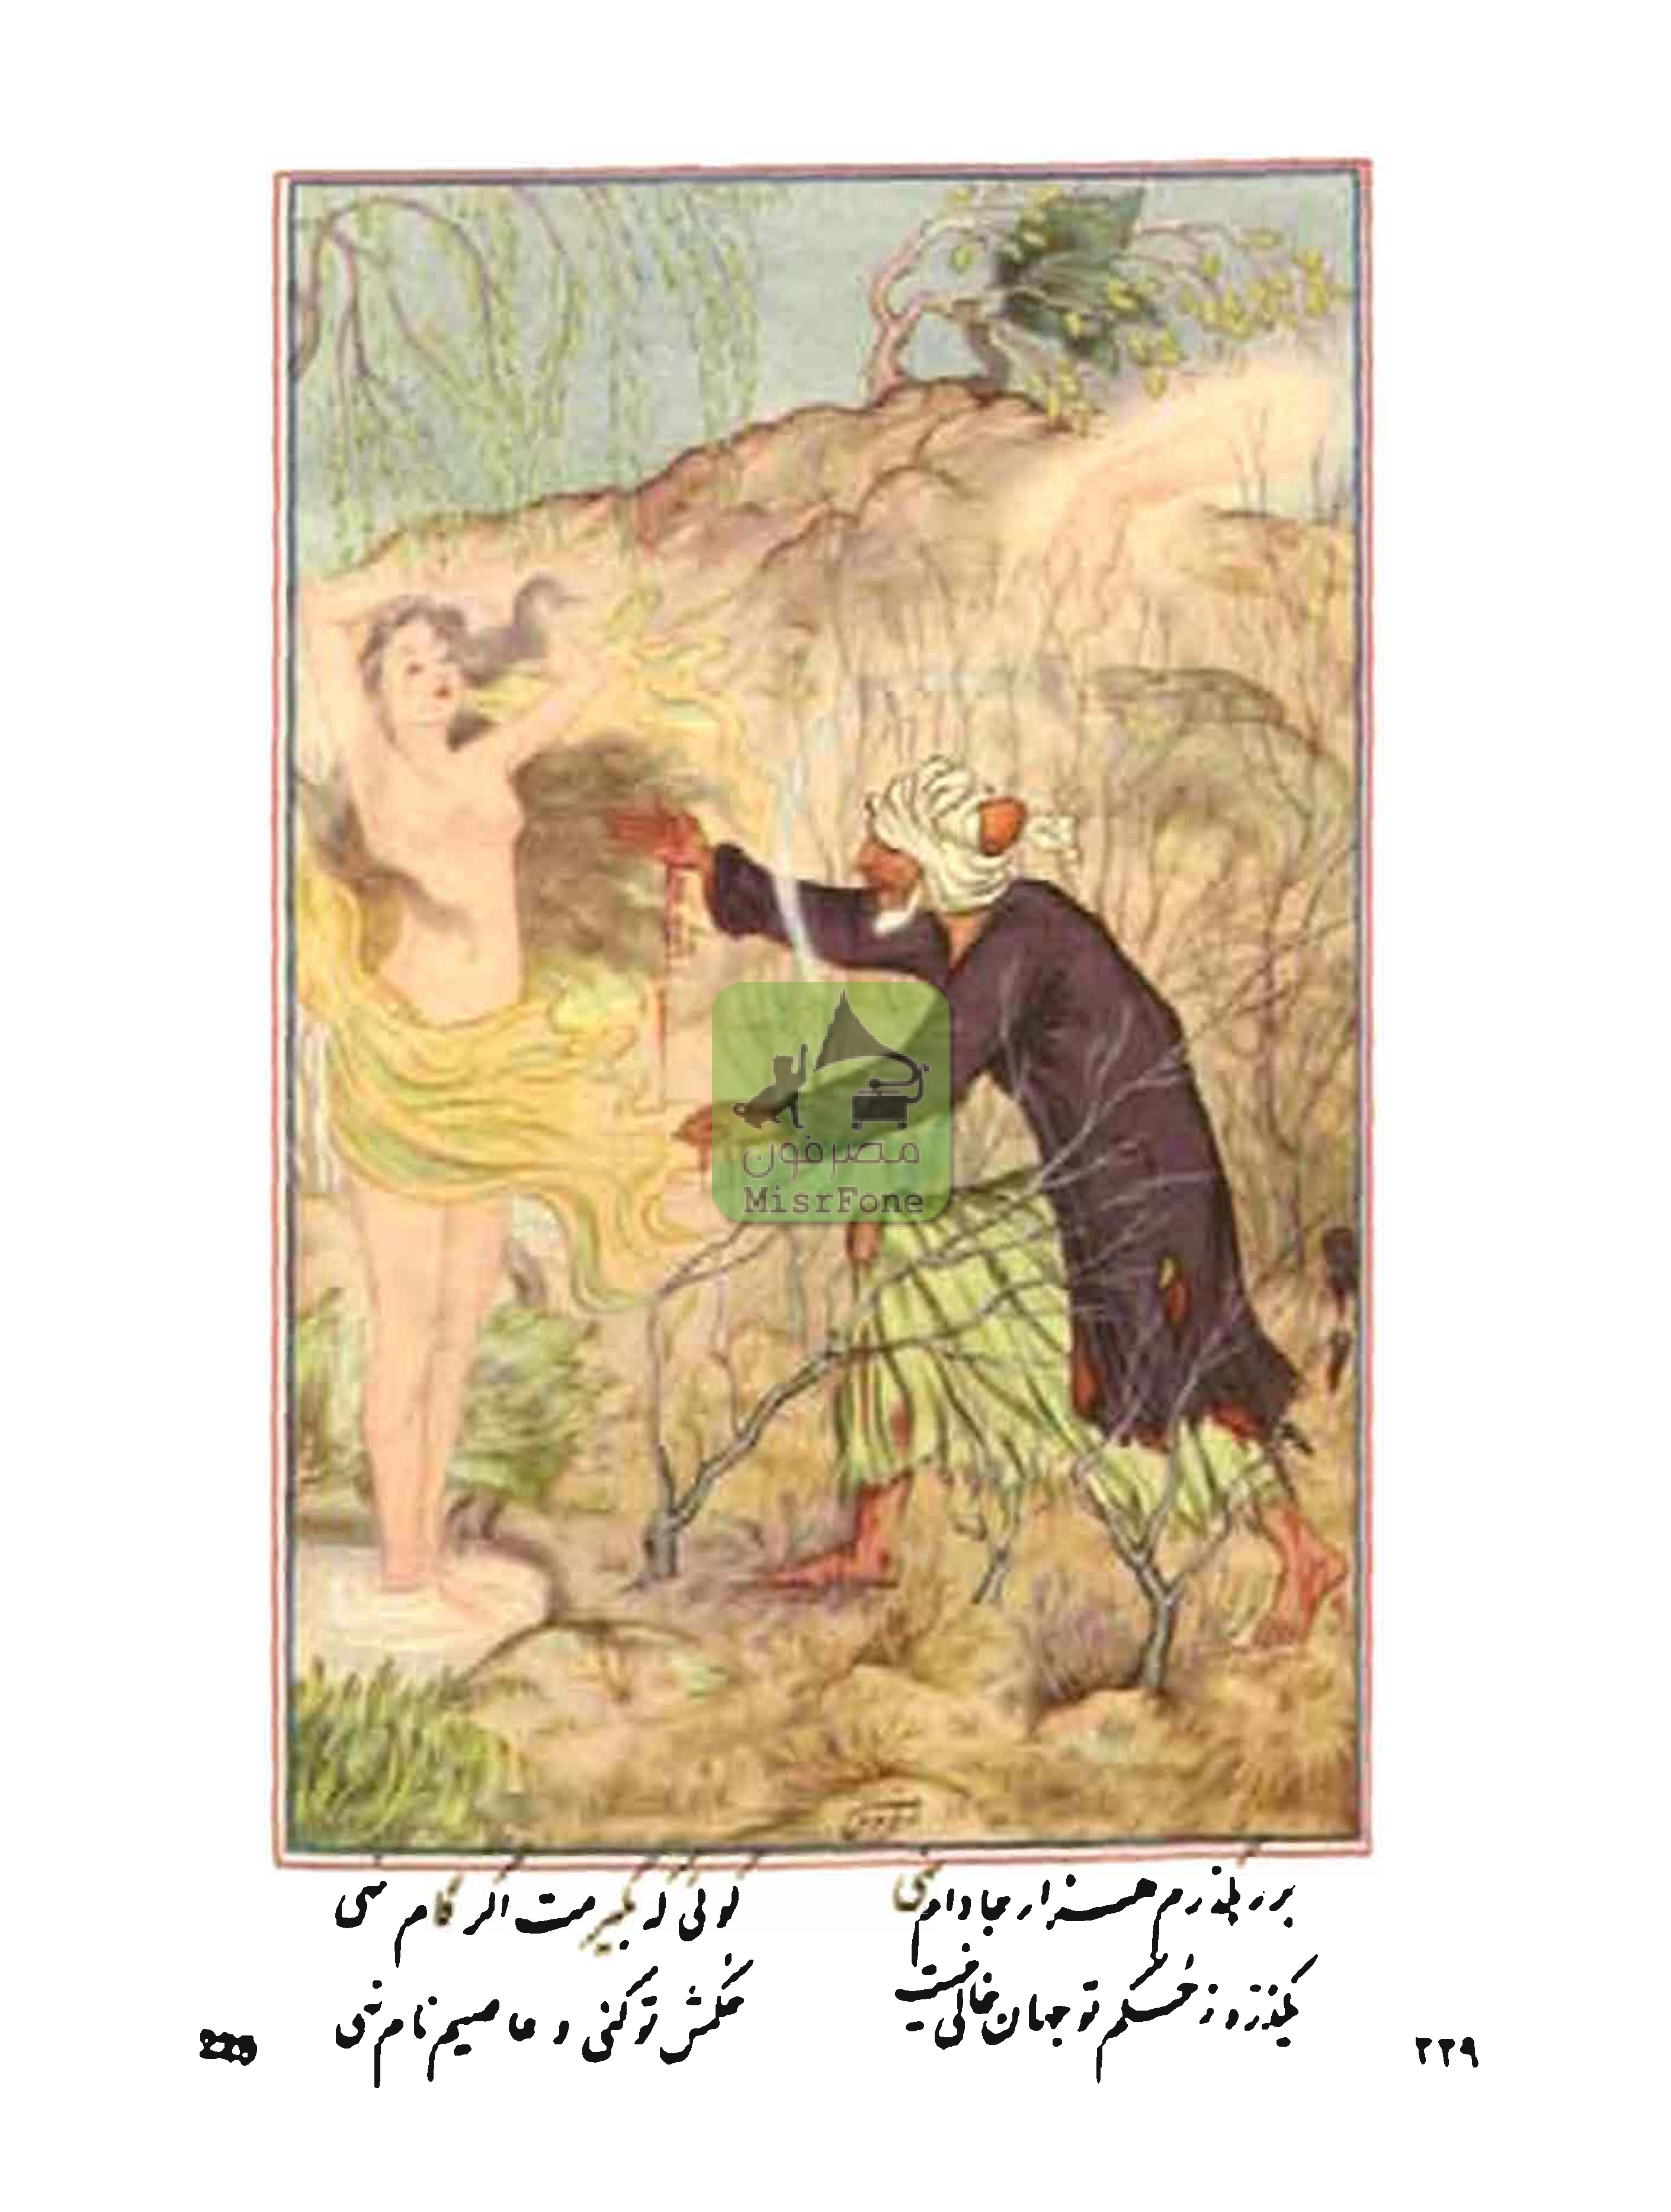 مصرفون
MisrFone
بر رهگذرم هزار جا دام نهی گوئی که بگیرمت اگر گام نهی
یکذره ز حکم تو جهان خالی نیست حکمش تو کنی و عاصیم نام نهی
٢٢٩
229